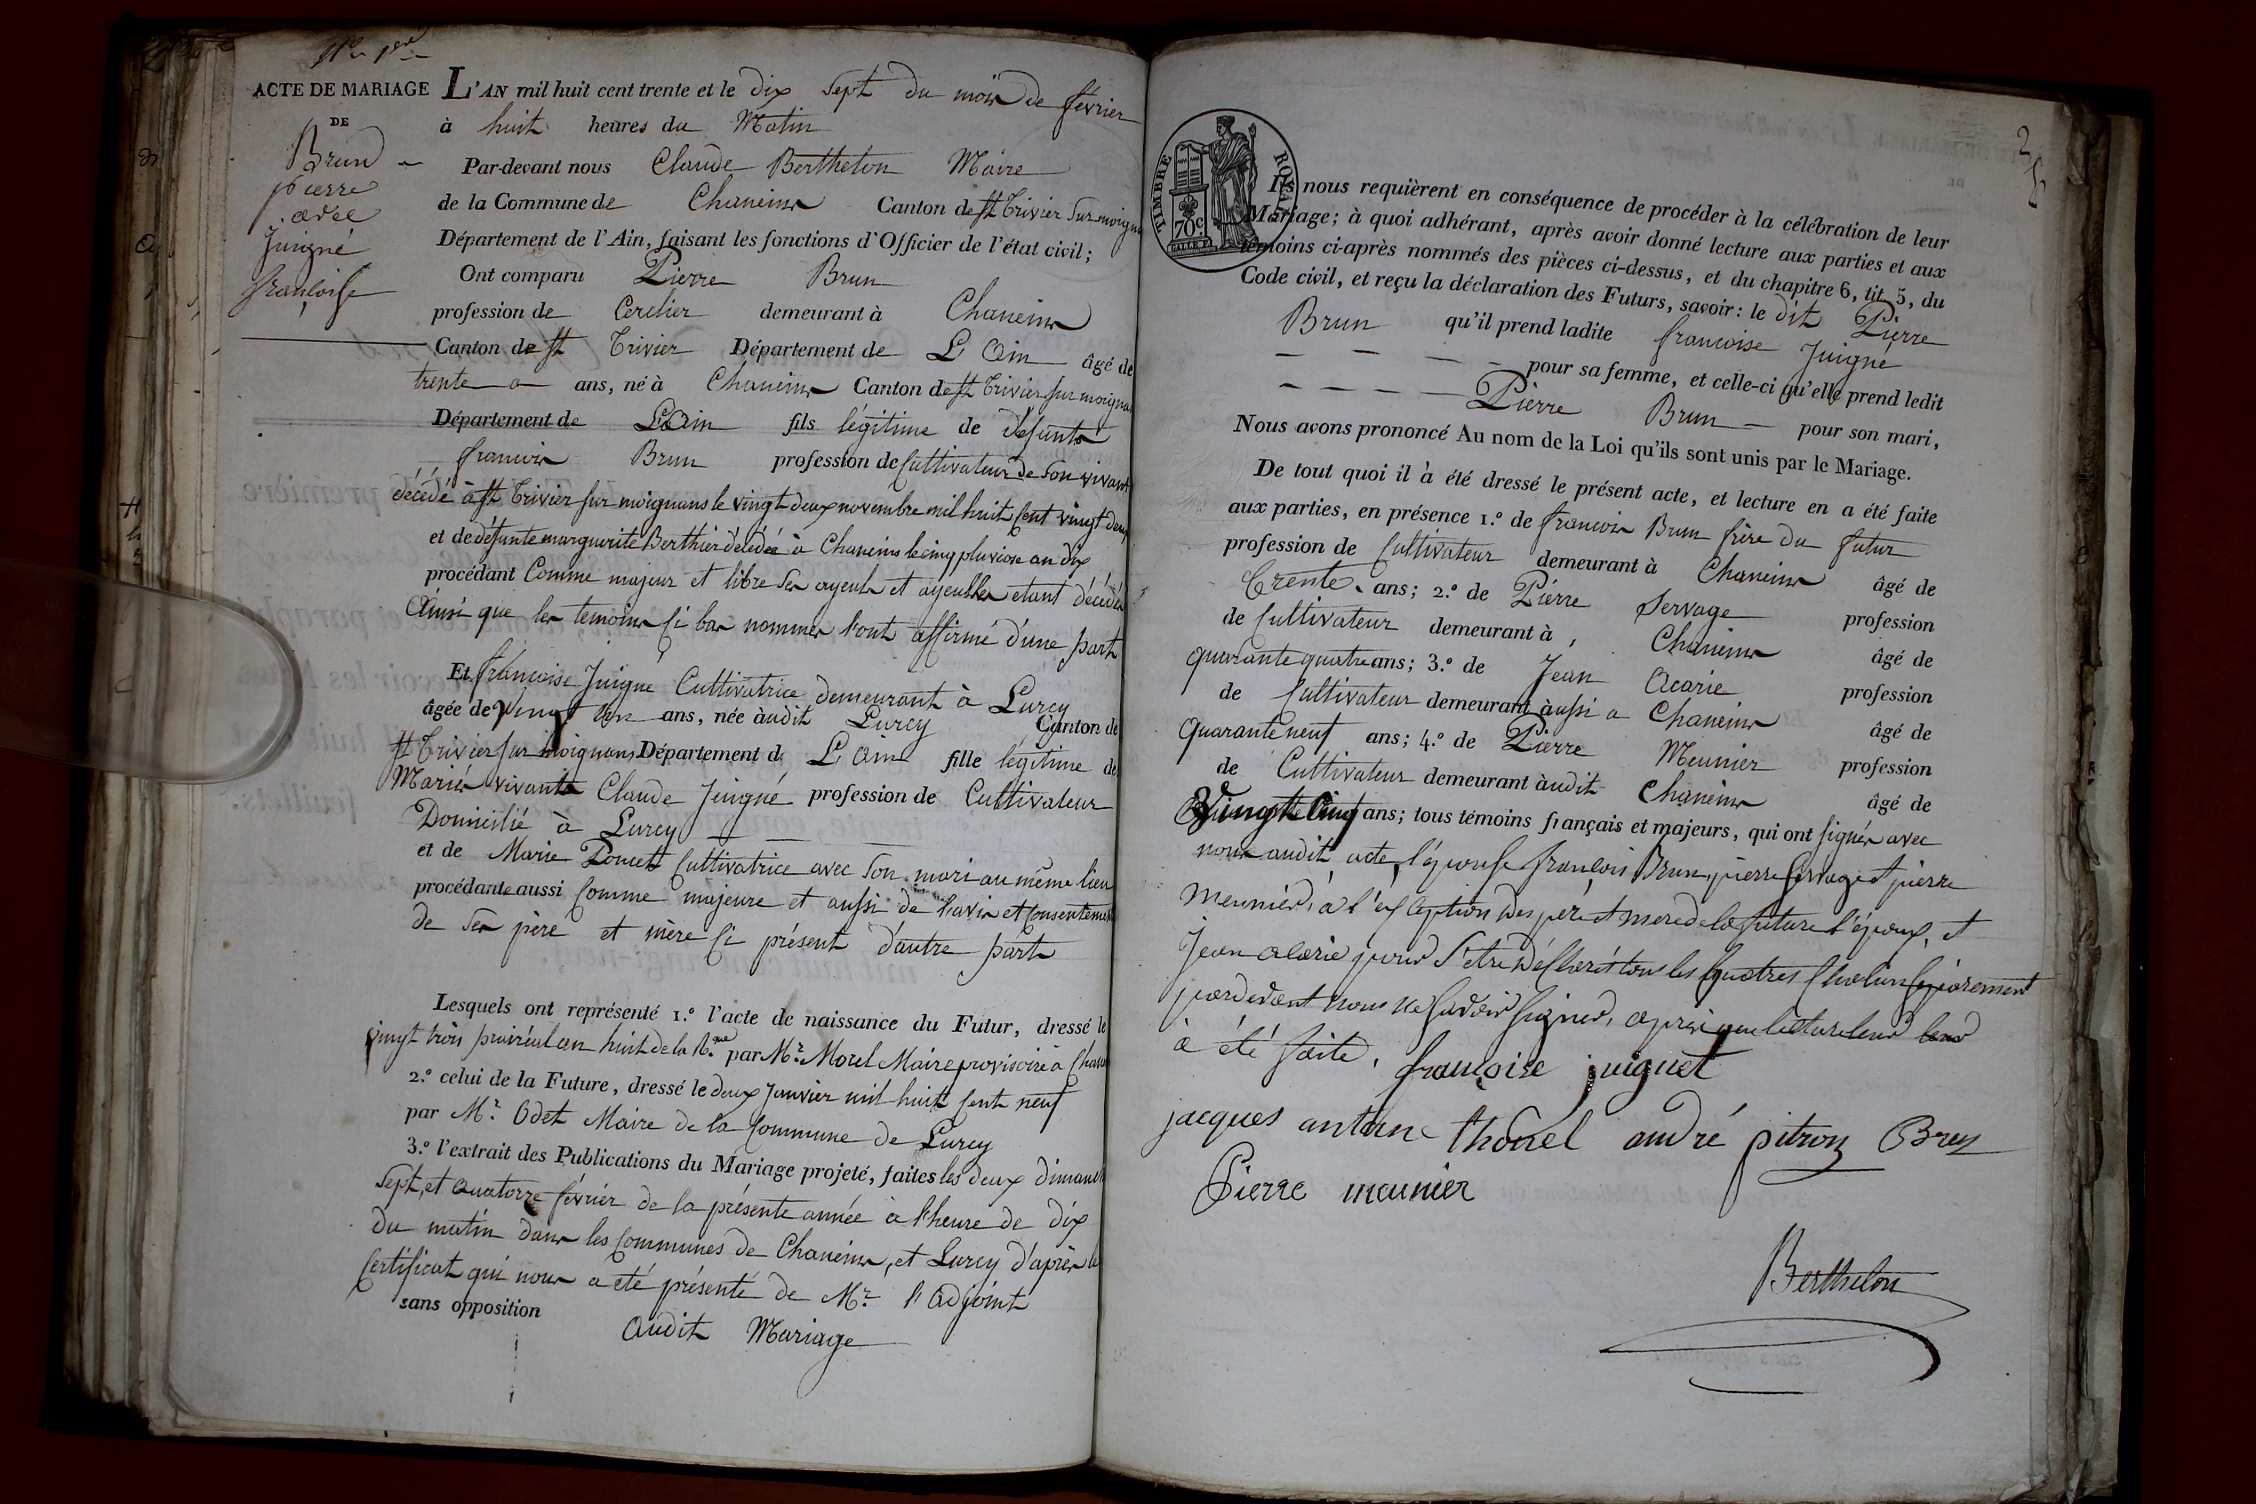 N.o 1.er
ACTE DE MARIAGE
DE
Brun
pierre
avec
Juigné
françoise
L'AN mil huit cent trente et le dix sept du mois de février
à huit heures du Matin
Par-devant nous Claude Berthelon Maire
de la Commune de Chaneins Canton de St Trivier sur moignans
Département de l'Ain, faisant les fonctions d'Officier de l'état civil;
Ont comparu Pierre Brun
profession de Cerclier demeurant à Chaneins
Canton de St Trivier Département de L'Ain âgé de
trente ans, né à Chaneins Canton de St Trivier sur moignans
Département de L'Ain fils légitime de défunts
francois Brun profession de Cultivateur de son vivant
décédé à St Trivier sur moignans le vingt deux novembre mil huit cent vingt deux
et de défunte marguerite Berthier décédée à Chaneins le cinq pluviose an dix
procédant Comme majeur et libre ses ayeuls et ayeulles etant décédés
Ainsi que les temoins ci bas nommés l'ont affirmé d'une part
Et francoise Juigné Cultivatrice demeurant à Lurcy
âgée de vingt un ans, née audit Lurcy Canton de
St Trivier sur moignans Département d L'Ain fille légitime de
Mariés vivants Claude Juigné profession de Cultivateur
Domicilié à Lurcy
et de Marie Poncet Cultivatrice avec son mari au même lieu
procédante aussi Comme majeure et aussi de l'avis et Consentement
de ses père et mère ci présent d'autre part
Lesquels ont représenté 1.º l'acte de naissance du Futur, dressé le
vingt trois prairéal an huit de la R.que par Mr. Morel Maire provisoire à Chaneins
2.º celui de la Future, dressé le deux Janvier mil huit cent neuf
par Mr. Odet Maire de la Commune de Lurcy
3.º l'extrait des Publications du Mariage projeté, faites les deux dimanches
sept, et quatorze février de la présente année à l'heure de dix
du matin dans les Communes de Chaneins, et Lurcy d'après le
Certificat qui nous a eté présenté de Mr. l'Adjoint
sans opposition audit Mariage
2
TIMBRE ROYAL
70c
Ils nous requièrent en conséquence de procéder à la célébration de leur
Mariage; à quoi adhérant, après avoir donné lecture aux parties et aux
témoins ci-après nommés des pièces ci-dessus, et du chapitre 6, tit. 5, du
Code civil, et reçu la déclaration des Futurs, savoir: le dit Pierre
Brun qu'il prend ladite francoise Juigné
pour sa femme, et celle-ci qu'elle prend ledit
Pierre Brun pour son mari,
Nous avons prononcé Au nom de la Loi qu'ils sont unis par le Mariage.
De tout quoi il à été dressé le présent acte, et lecture en a été faite
aux parties, en présence 1.º de francois Brun frère du futur
profession de Cultivateur demeurant à Chaneins âgé de
trente ans; 2.º de Pierre Servage profession
de Cultivateur demeurant à Chaneins âgé de
quarante quatre ans; 3.º de Jean Acarie profession
de Cultivateur demeurant aussi a Chaneins âgé de
Quarante neuf ans; 4.º de Pierre Meunier profession
de Cultivateur demeurant audit Chaneins âgé de
vingt Cinq ans; tous témoins français et majeurs, qui ont signés avec
nous audit acte, l'épouse françois Brun, pierre Servage et pierre
Meunier, à l'exception des père et mere de la future l'époux, et
Jean acarie pour s'etre déclarés tous les quatres chacun séparement
pardevant nous ne savoir signer, après que lecture leur
à été faite.
françoise juignet
jacques antoine thönel andré pitron Brun
Pierre meunier
Berthelon